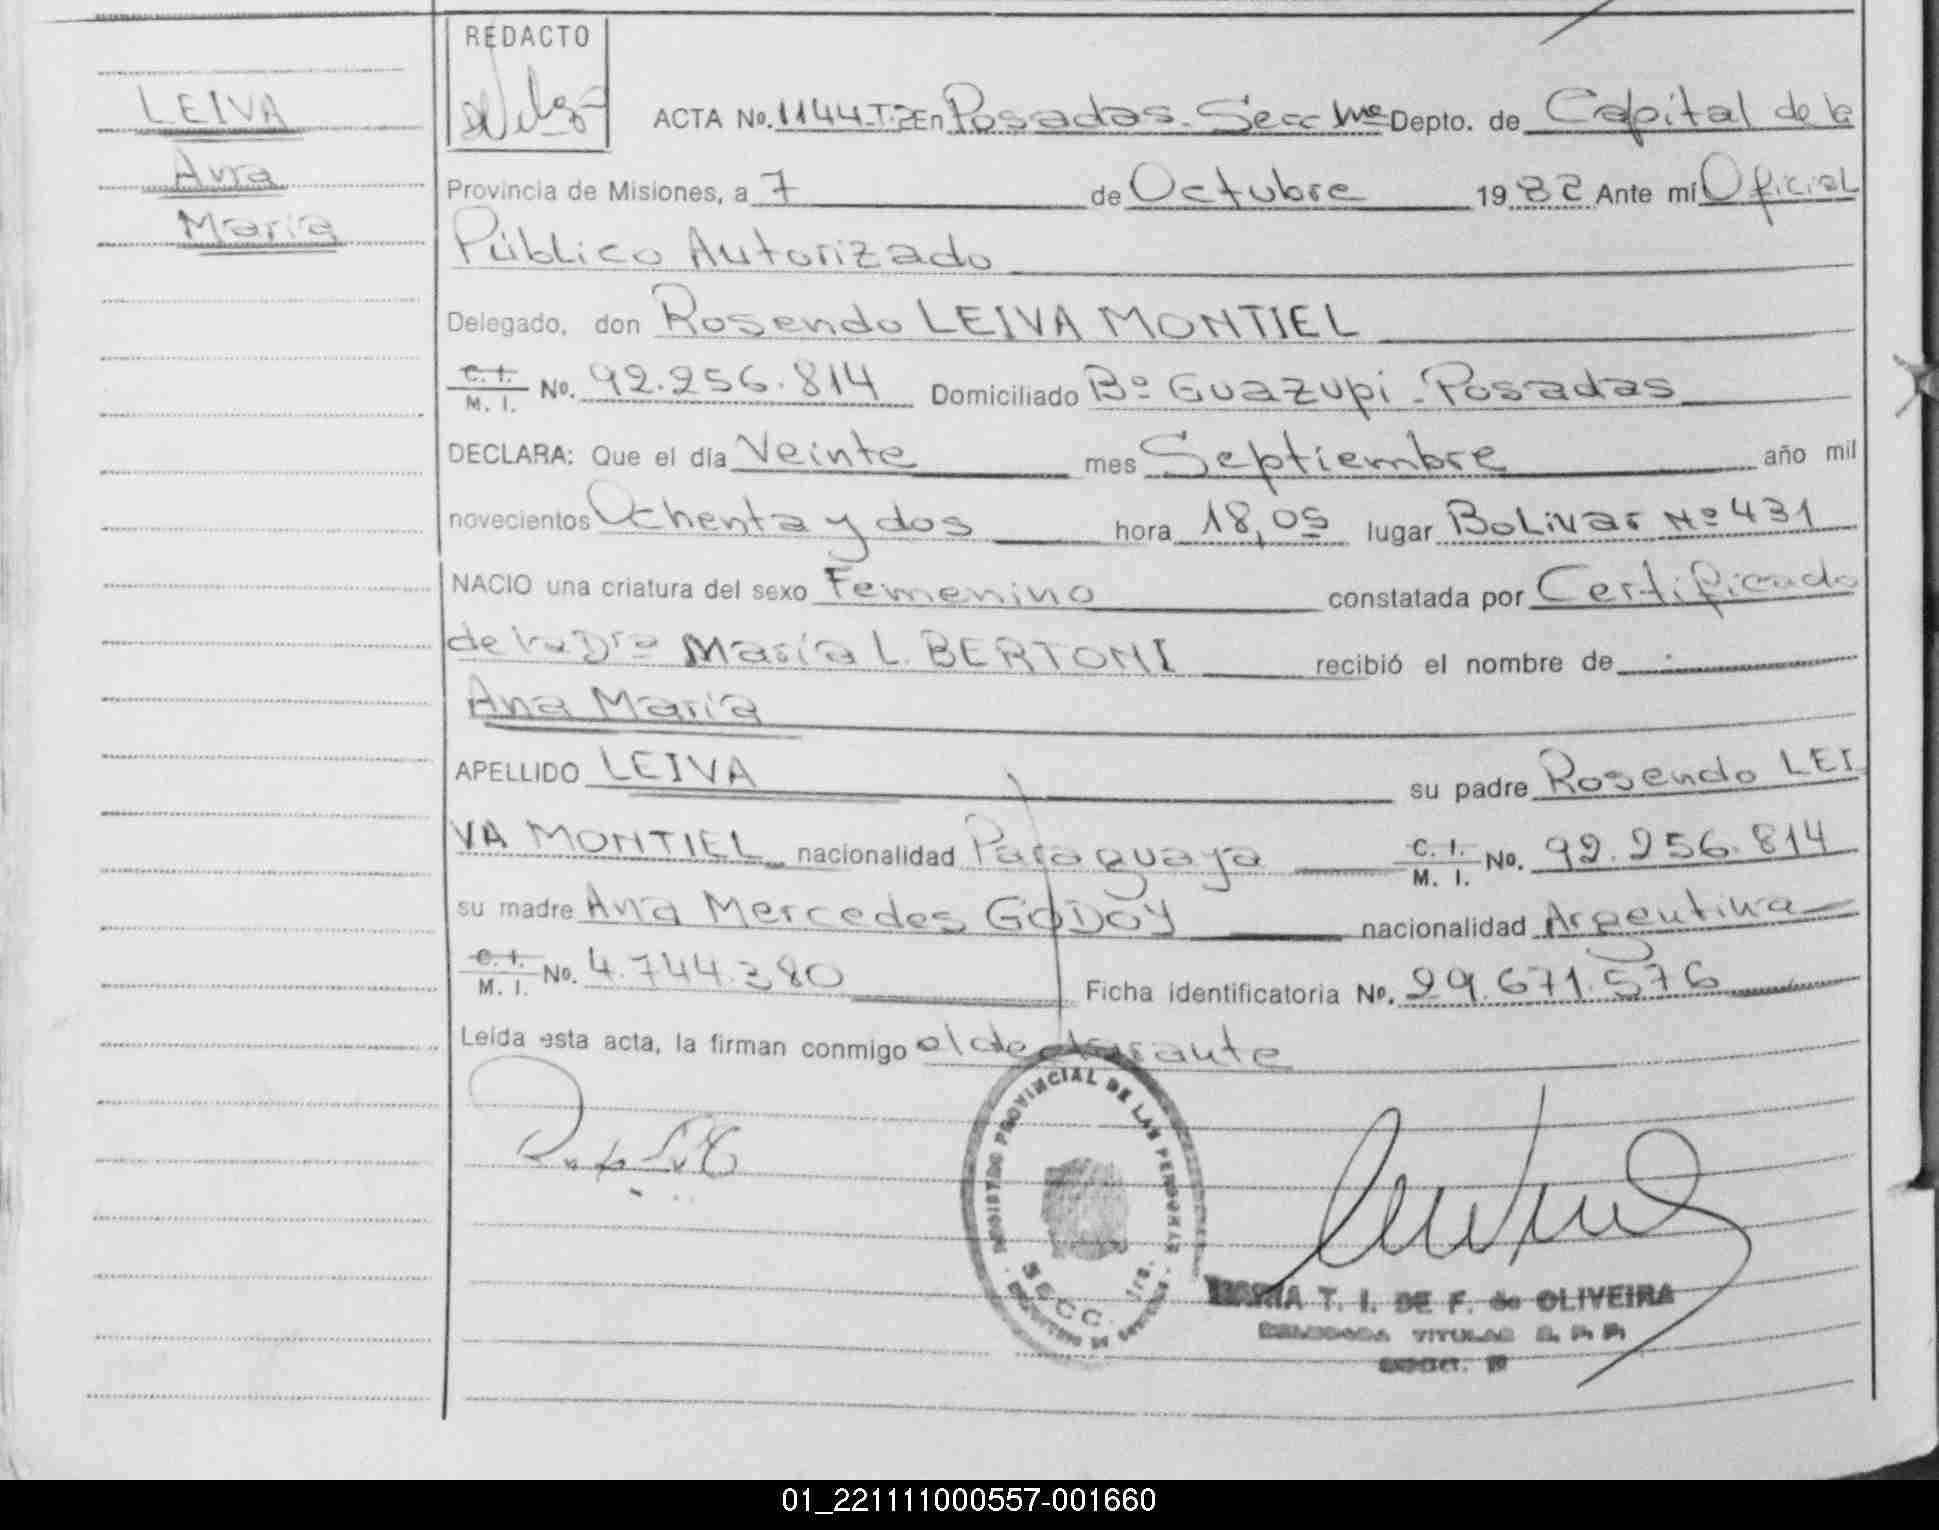 REDACTO
LEIVA
Ana
María
ACTA No. 1144-T-2 En Posadas-Secc 1ra Depto. de Capital de la
Provincia de Misiones, a 7 de Octubre 1982 Ante mí Oficial
Público Autorizado
Delegado, don Rosendo LEIVA MONTIEL
C. I. M. I. No. 92.256.814 Domiciliado Bº Guazupi-Posadas
DECLARA: Que el día Veinte mes Septiembre año mil
novecientos Ochenta y dos hora 18,05 lugar Bolivar Nº 431
NACIO una criatura del sexo Femenino constatada por Certificado
de la Dra María L. BERTONI recibió el nombre de
Ana María
APELLIDO LEIVA su padre Rosendo LEI
VA MONTIEL nacionalidad Paraguaya C. I. M. I. No. 92.256.814
su madre Ana Mercedes GODOY nacionalidad Argentina
C. I. M. I. No. 4.744.380 Ficha identificatoria No. 29.671.576
Leída esta acta, la firman conmigo el declarante
REGISTRO PROVINCIAL DE LAS PERSONAS
SECC. 1ra.
MARIA T. I. DE F. de OLIVEIRA
DELEGADA TITULAR R. P. P.
01_221111000557-001660